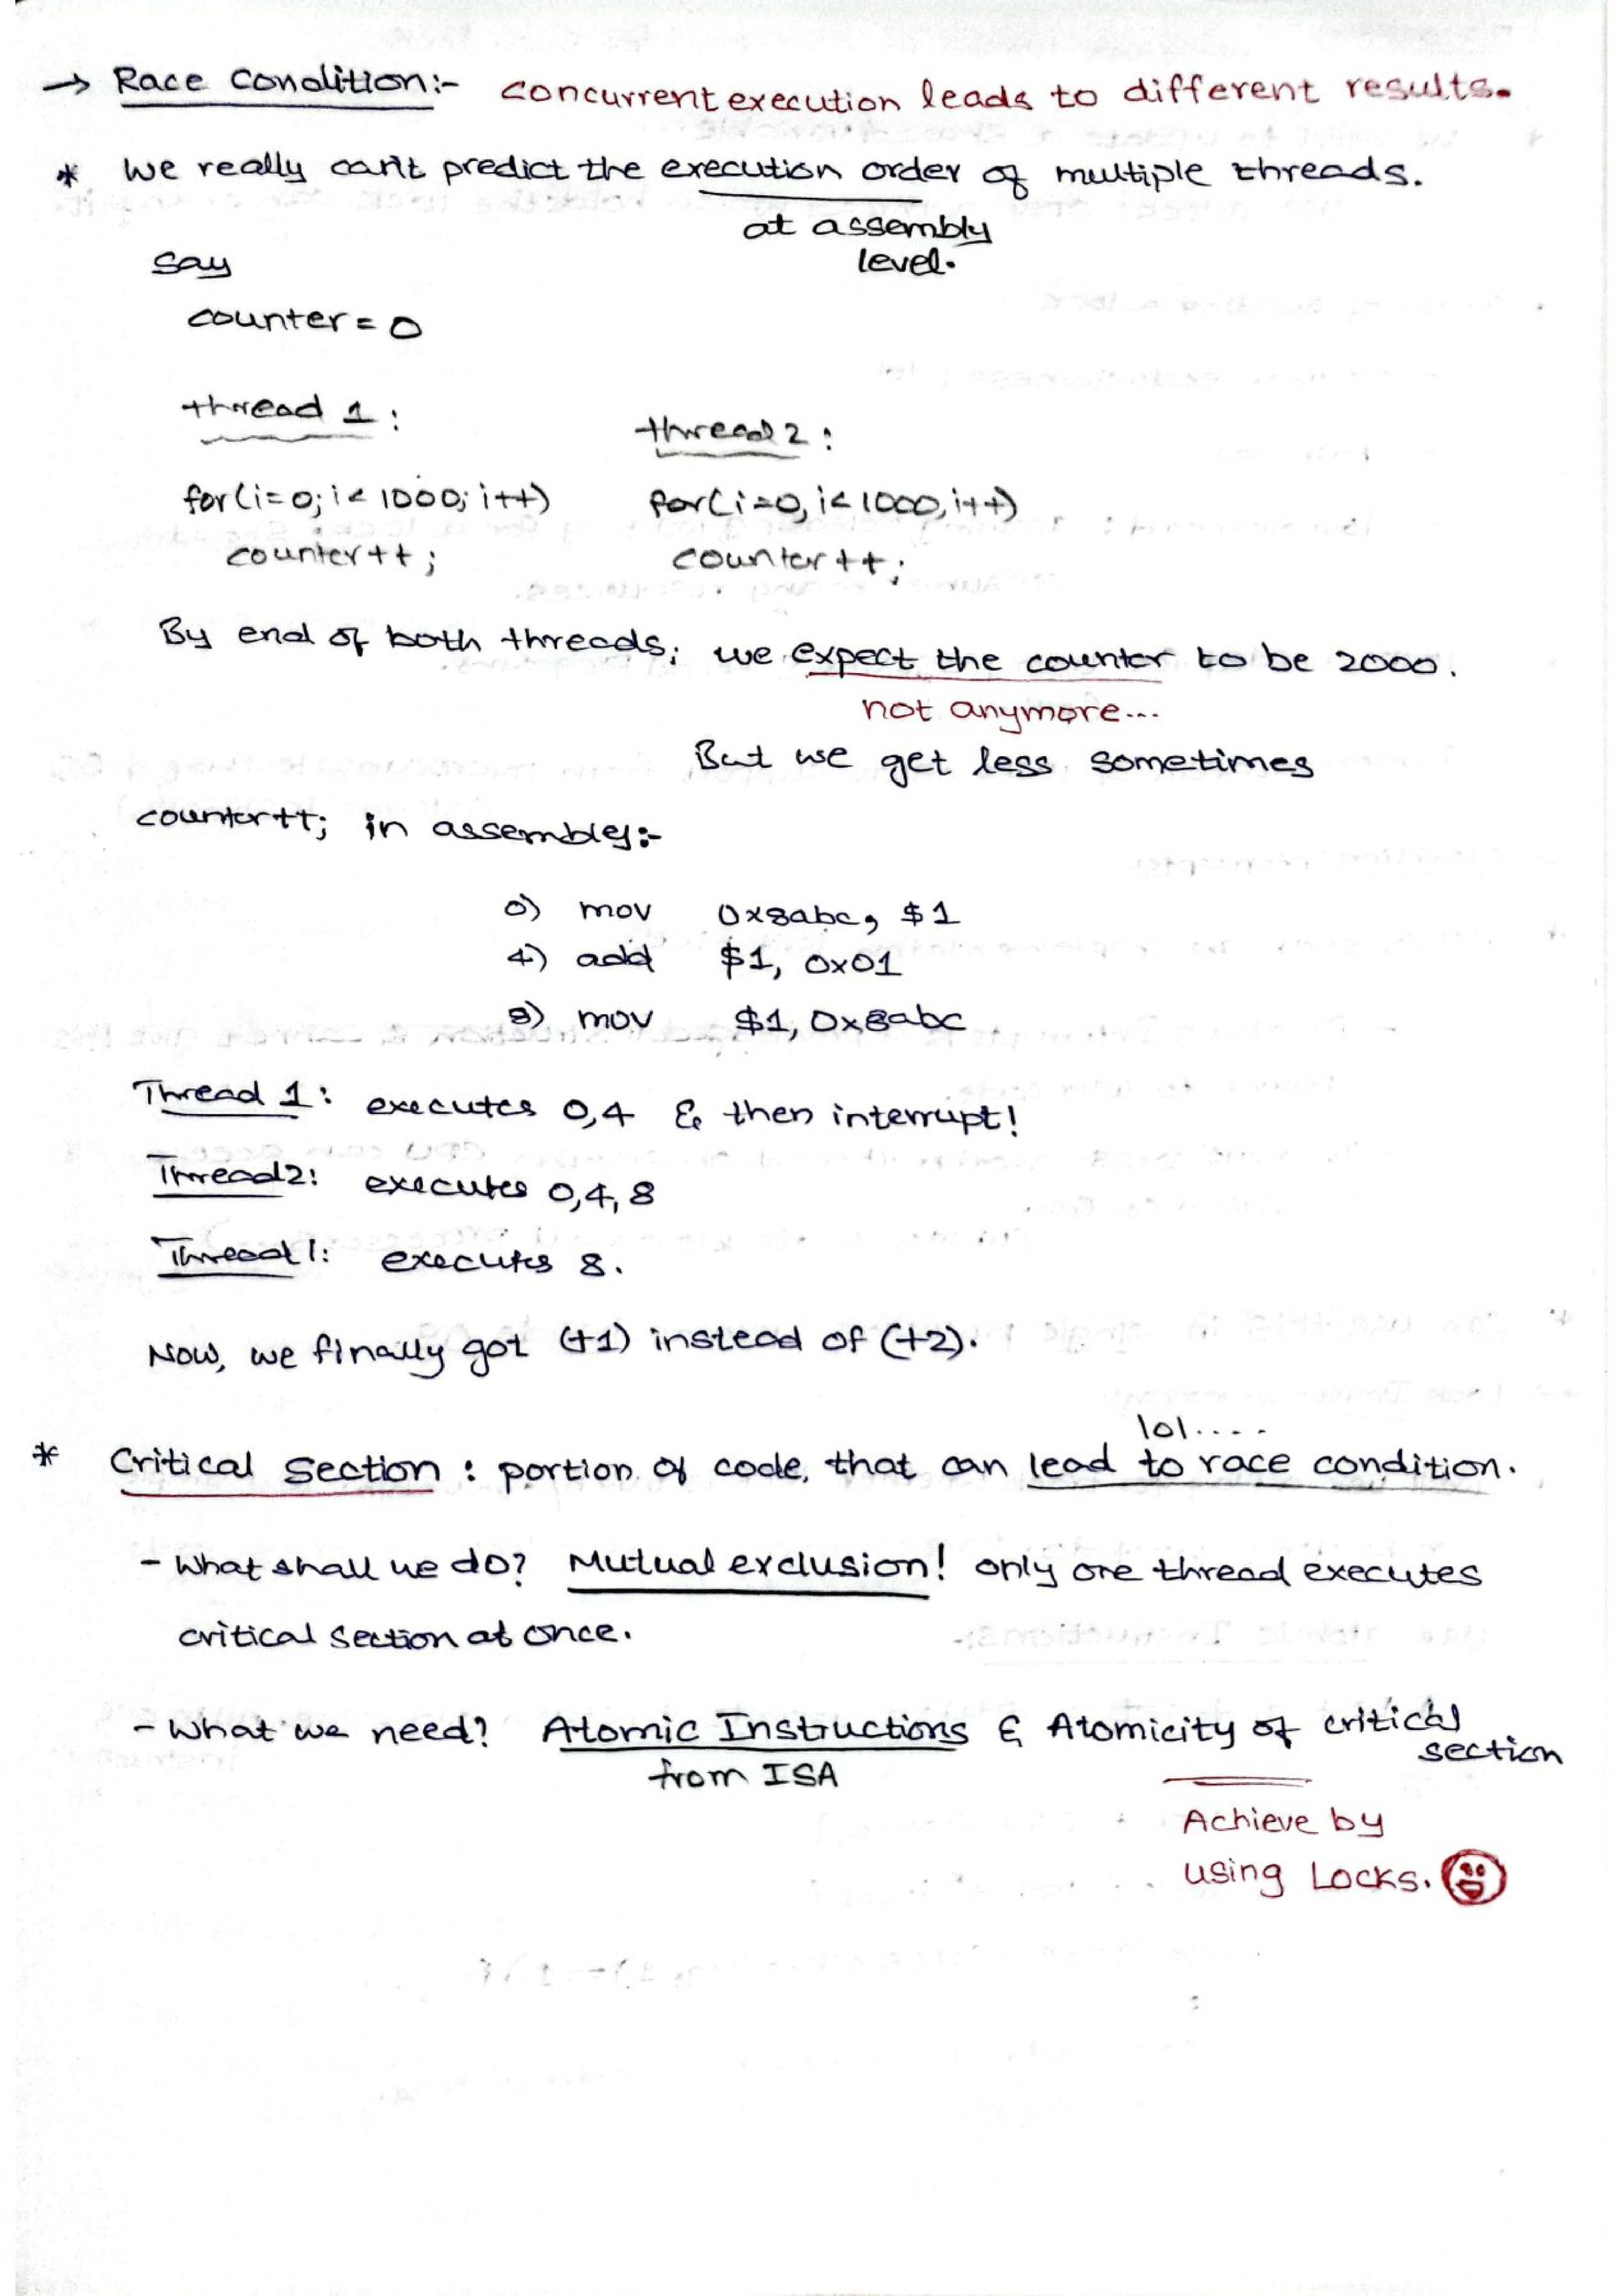 → Race Condition:- concurrent execution leads to different results.
* We really can't predict the execution order of multiple threads.
at assembly
level.
Say
counter = 0
thread 1 :
thread 2 :
for(i=0; i< 1000; i++)
for(i=0, i< 1000, i++)
counter++;
counter++;
By end of both threads; we expect the counter to be 2000.
not anymore...
But we get less sometimes
counter++; in assembly:-
0) mov 0x8abc, $1
4) add $1, 0x01
8) mov $1, 0x8abc
Thread 1: executes 0,4 & then interrupt!
Thread2: executes 0,4, 8
Thread1: executes 8.
Now, we finally got (+1) instead of (+2).
lol....
* Critical section : portion of code, that can lead to race condition.
- What shall we do? Mutual exclusion! only one thread executes
critical section at once.
- What we need? Atomic Instructions & Atomicity of critical
section
from ISA
Achieve by
using Locks.